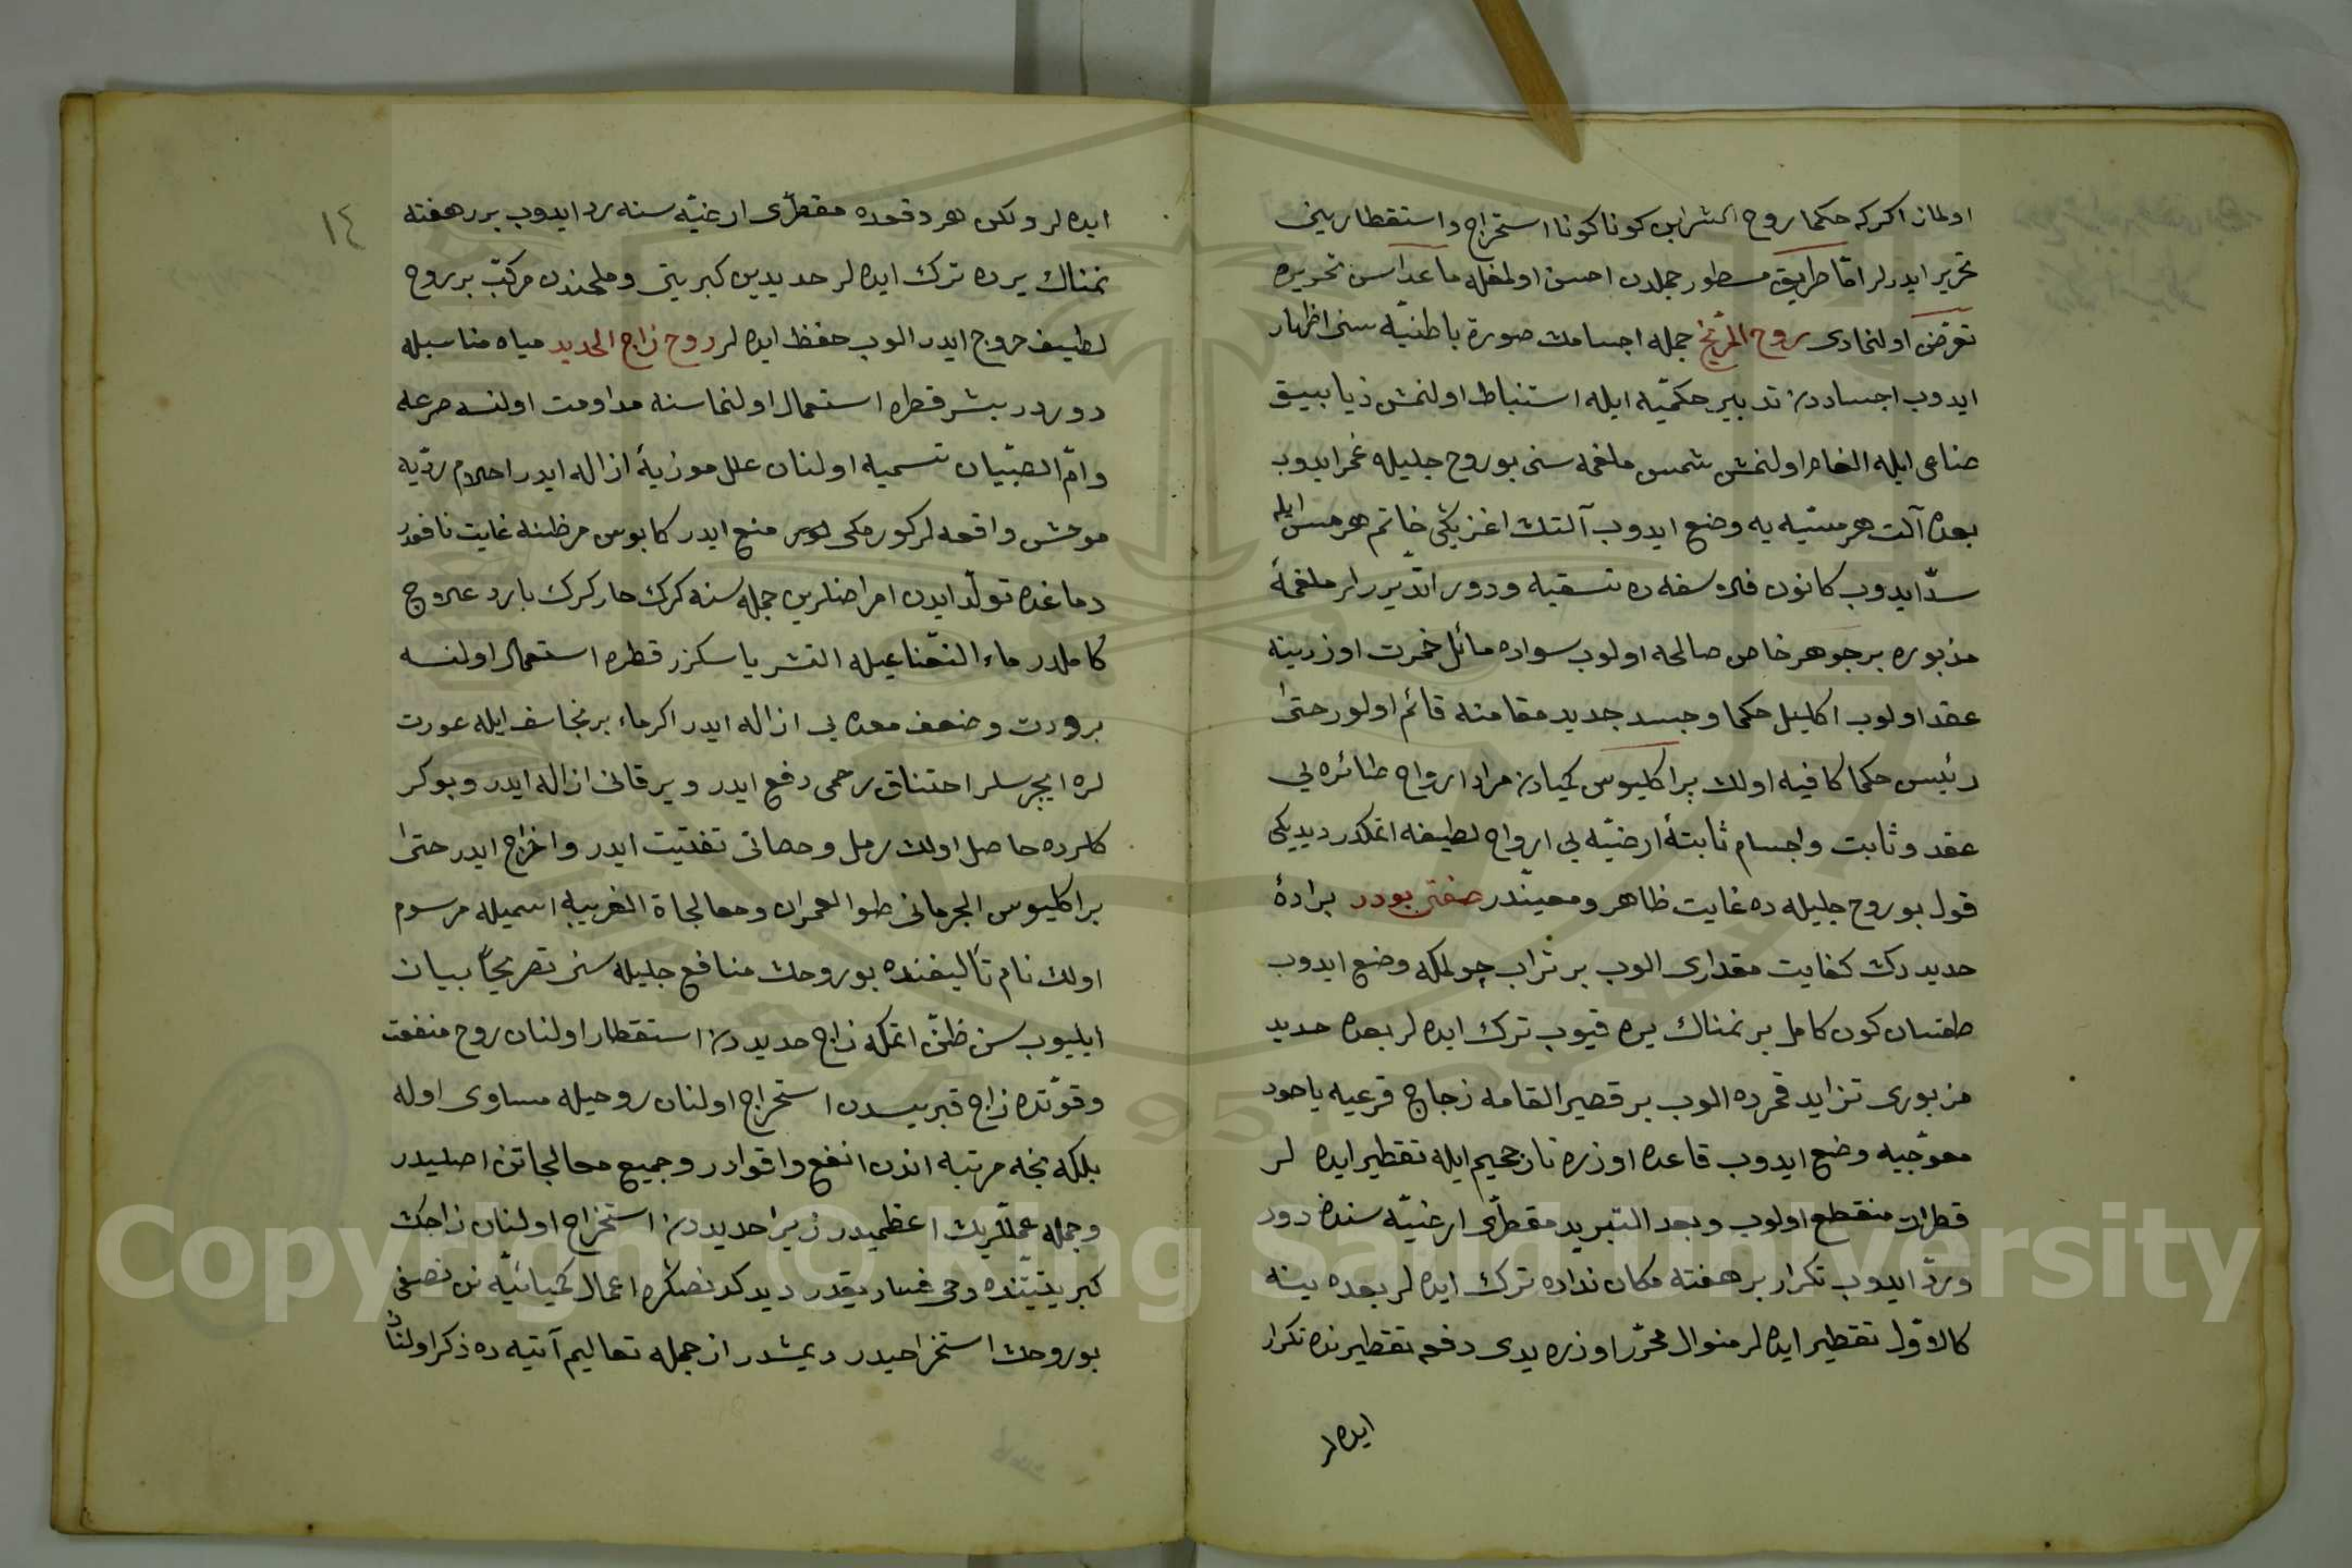 اولمان اكركه حكما روح الشرابى كونا كونا استخراج و استقطارينى
تحرير ايدرلر امّا طريق مسطور جمله‌دن احسن اولمغله ماعداسن تحريره
تعرّض اولنمادى روح المرّيخ جمله اجسامك صورة باطنيّه سنى اظهار
ايدوب اجساددن تدبير حكميّه ايله استنباط اولنمش زيابيق
صناعى ايله الغام اولنمش شمس ملغمه سنى بو روح جليله غمر ايدوب
بعده آلت هرمسيّه يه وضع ايدوب آلتك اغزينى خاتم هرمس ايله
سدّ ايدوب كانون فلاسفه ده تسقيه و دور اتديررلر ملغمهٔ
مذبوره بر جوهر خاص صالحه اولوب سواده مائل خمرت اوزرينه
عقد اولوب اكليل حكما و جسد جديد مقامنه قائم اولور حتى
رئيس حكما كافيه اولان براكليوس كيميادن مراد ارواح طائره يى
عقد و ثابت و اجسام ثابتهٔ ارضيّه يى ارواح لطيفه اتمكدر ديديكى
قول بو روح جليله ده غايت ظاهر و معيّندر صفتى بودر برادهٔ
حديددن كفايت مقدارى الوب بر تراب چولمكه وضع ايدوب
طقسان كون كامل بر نمناك يره قيوب ترك ايده لر بعده حديد
مزبورى تزايد قمرده الوب بر قصير القامه زجاج قرعيه ياخود
معوّجيه وضع ايدوب قاعده اوزره نار جحيم ايله تقطير ايده لر
قطرات منقطع اولوب و بعد التبريد مقطرّى ارضيّه سنه دور
و ردّ ايدوب تكرار بر هفته مكان نداده ترك ايده لر بعده ينه
كالاوّل تقطير ايده لر منوال محرّر اوزره يدى دفعه تقطيرنده تكرار
ايده لر
١٤
ايده لر و لكن هر دفعه‌ده مقطرّى ارضيّه سنه ردّ ايدوب برر هفته
نمناك يرده ترك ايده لر حديدين كبريتى و ملحندن مركّب بر روح
لطيف خروج ايدر الوب حفظ ايده لر روح زاج الحديد مياه مناسبله
دوردر بشر قطره استعمال اولنماسنه مداومت اولنسه صرعه
و امّ الصبيان تسميه اولنان علل موزيهٔ ازاله ايدر احلام رديّه
موحش واقعه لر كورمكى منع ايدر كابوس مرظنه غايت نافعدر
دماغده تولّد ايدن امراضلرين جمله سنه كرك حار كرك بارد علاج
كاملدر ماء النعناعيله التشر يا سكزر قطره استعمال اولنسه
برودت و ضعف معده يى ازاله ايدر اكر ماء برنجاسف ايله عورت
لره ايچرسلر احتناق رحمى دفع ايدر و يرقانى ازاله ايدر و بوكر
كلرده حاصل اولان رمل و حصاتى تفتيت ايدر و اخراج ايدر حتى
براكليوس الجرمانى طوالعمران و معالجاة الغريبه اسميله مرسوم
اولان نام تأليفنده بو روحك منافع جليله سنى تصريحاً بيان
ايليوب سن ظنّ اتمكه زاج حديددن استقطار اولنان روح منفعت
و قوّتده زاج قبريسدن استخراج اولنان روحيله مساوى اوله
بلكه نجه مرتبه اندن انفع و اقوادر و جميع معالجاتن اصليدر
و جمله عمللريك اعظميدر زيرا حديددن استخراج اولنان زاجك
كبريتيّتنده وحى فساد يقدر ديدكدنصكره اعمال كيميائيّه نن نصفى
بو روحك استخراجيدر ديمشدر از جمله تعاليم آتيه ده ذكر اولنان
Copyright © King Saud University